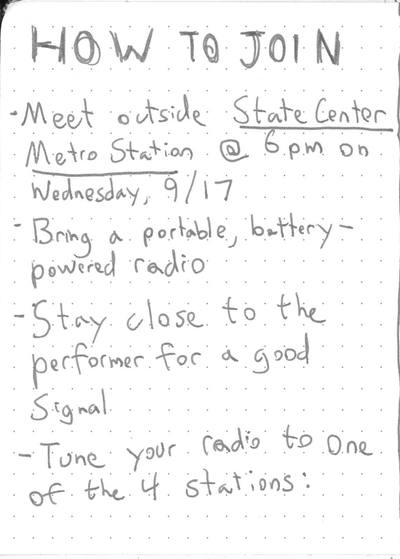 HOW TO JOIN
- Meet outside State Center
Metro Station @ 6pm on
Wednesday, 9/17
- Bring a portable, battery-
powered radio
- Stay close to the
performer for a good
signal
- Tune your radio to one
of the 4 stations: